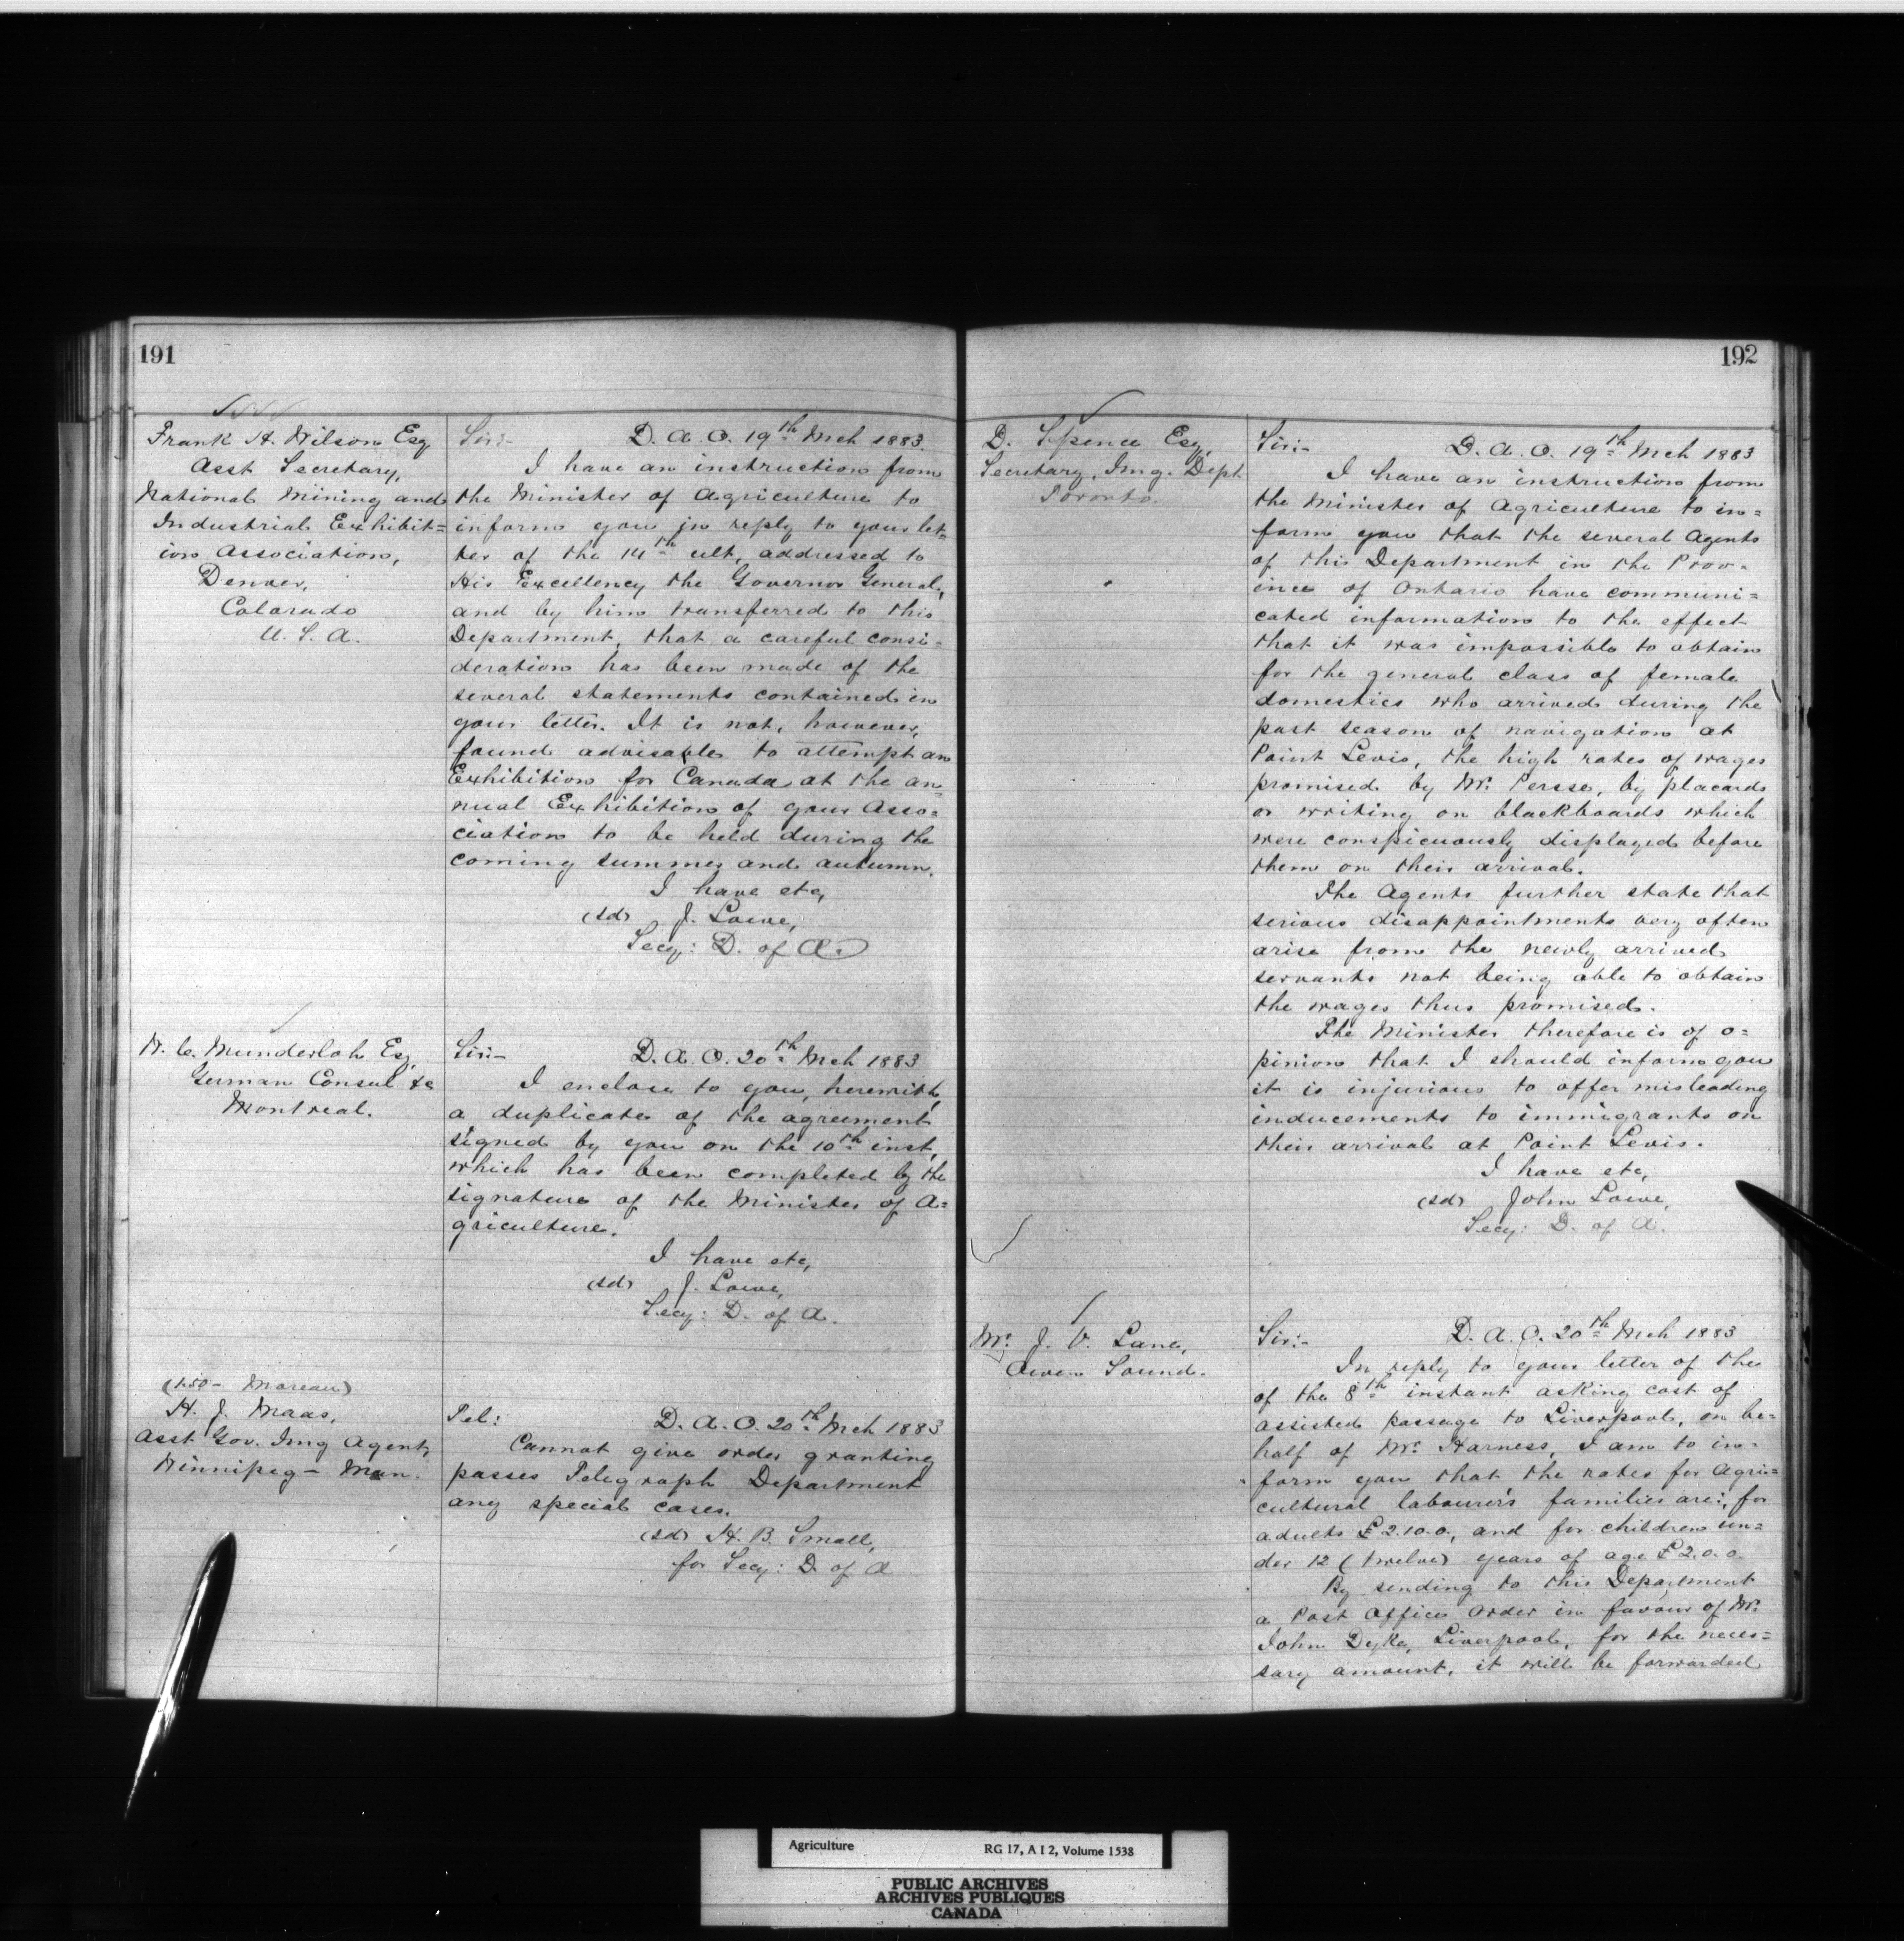 191
Frank H. Wilson Esq
Asst Secretary,
National Mining and
Industrial Exhibit=
ion Association,
Denver,
Colorado
U. S. A.
Sir:- D. A. O. 19th Mch 1883.
I have an instruction from
the Minister of Agriculture to
inform you in reply to your let=
ter of the 14th ult, addressed to
His Excellency the Governor General,
and by him transferred to this
Department, that a careful consi=
deration has been made of the
several statements contained in
your letter. It is not, however,
found advisable to attempt an
Exhibition for Canada at the an=
nual Exhibition of your Asso=
ciation to be held during the
coming summer and autumn.
I have etc,
(sd) J. Lowe,
Secy: D. of A.
W. C. Munderloh Esq
German Consul &c
Montreal.
Sir:- D. A. O. 20th Mch 1883
I enclose to you, herewith,
a duplicate of the agreement
signed by you on the 10th inst,
which has been completed by the
signature of the Minister of A=
griculture.
I have etc,
(sd) J. Lowe,
Secy: D. of A.
(1.50 - Moreau)
H. J. Maas,
Asst Gov. Img Agent,
Winnipeg - Man.
Tel: D. A. O. 20th Mch 1883
Cannot give order granting
passes Telegraph Department
any special cases.
(sd) H. B. Small,
for Secy: D. of A
192
D. Spence Esq,
Secretary, Img. Dept
Toronto.
Sir:- D. A. O. 19th Mch 1883
I have an instruction from
the Minister of Agriculture to in=
form you that the several Agents
of this Department in the Prov=
ince of Ontario have communi=
cated information to the effect
that it was impossible to obtain
for the general class of female
domestics who arrived during the
past season of navigation at
Point Levis, the high rates of wages
promised by Mr. Persse, by placards
or writing on blackboards which
were conspicuously displayed before
them on their arrival.
The Agents further state that
serious disappointments very often
arise from the newly arrived
servants not being able to obtain
the wages thus promised.
The Minister therefore is of o=
pinion that I should inform you
it is injurious to offer misleading
inducements to immigrants on
their arrival at Point Levis.
I have etc,
(sd) John Lowe,
Secy: D. of A.
Mr. J. V. Lane,
Owen Sound.
Sir:- D. A. O. 20th Mch 1883
In reply to your letter of the
of the 8th instant asking cost of
assisted passage to Liverpool, on be=
half of Mr. Harness, I am to in=
form you that the rates for Agri=
cultural labourer's families are:, for
adults £2.10.0, and for children un=
der 12 (twelve) years of age £2.0.0.
By sending to this Department
a Post Office Order in favour of Mr.
John Dyke, Liverpool, for the neces=
sary amount, it will be forwarded
Agriculture RG 17, A I 2, Volume 1538
PUBLIC ARCHIVES
ARCHIVES PUBLIQUES
CANADA